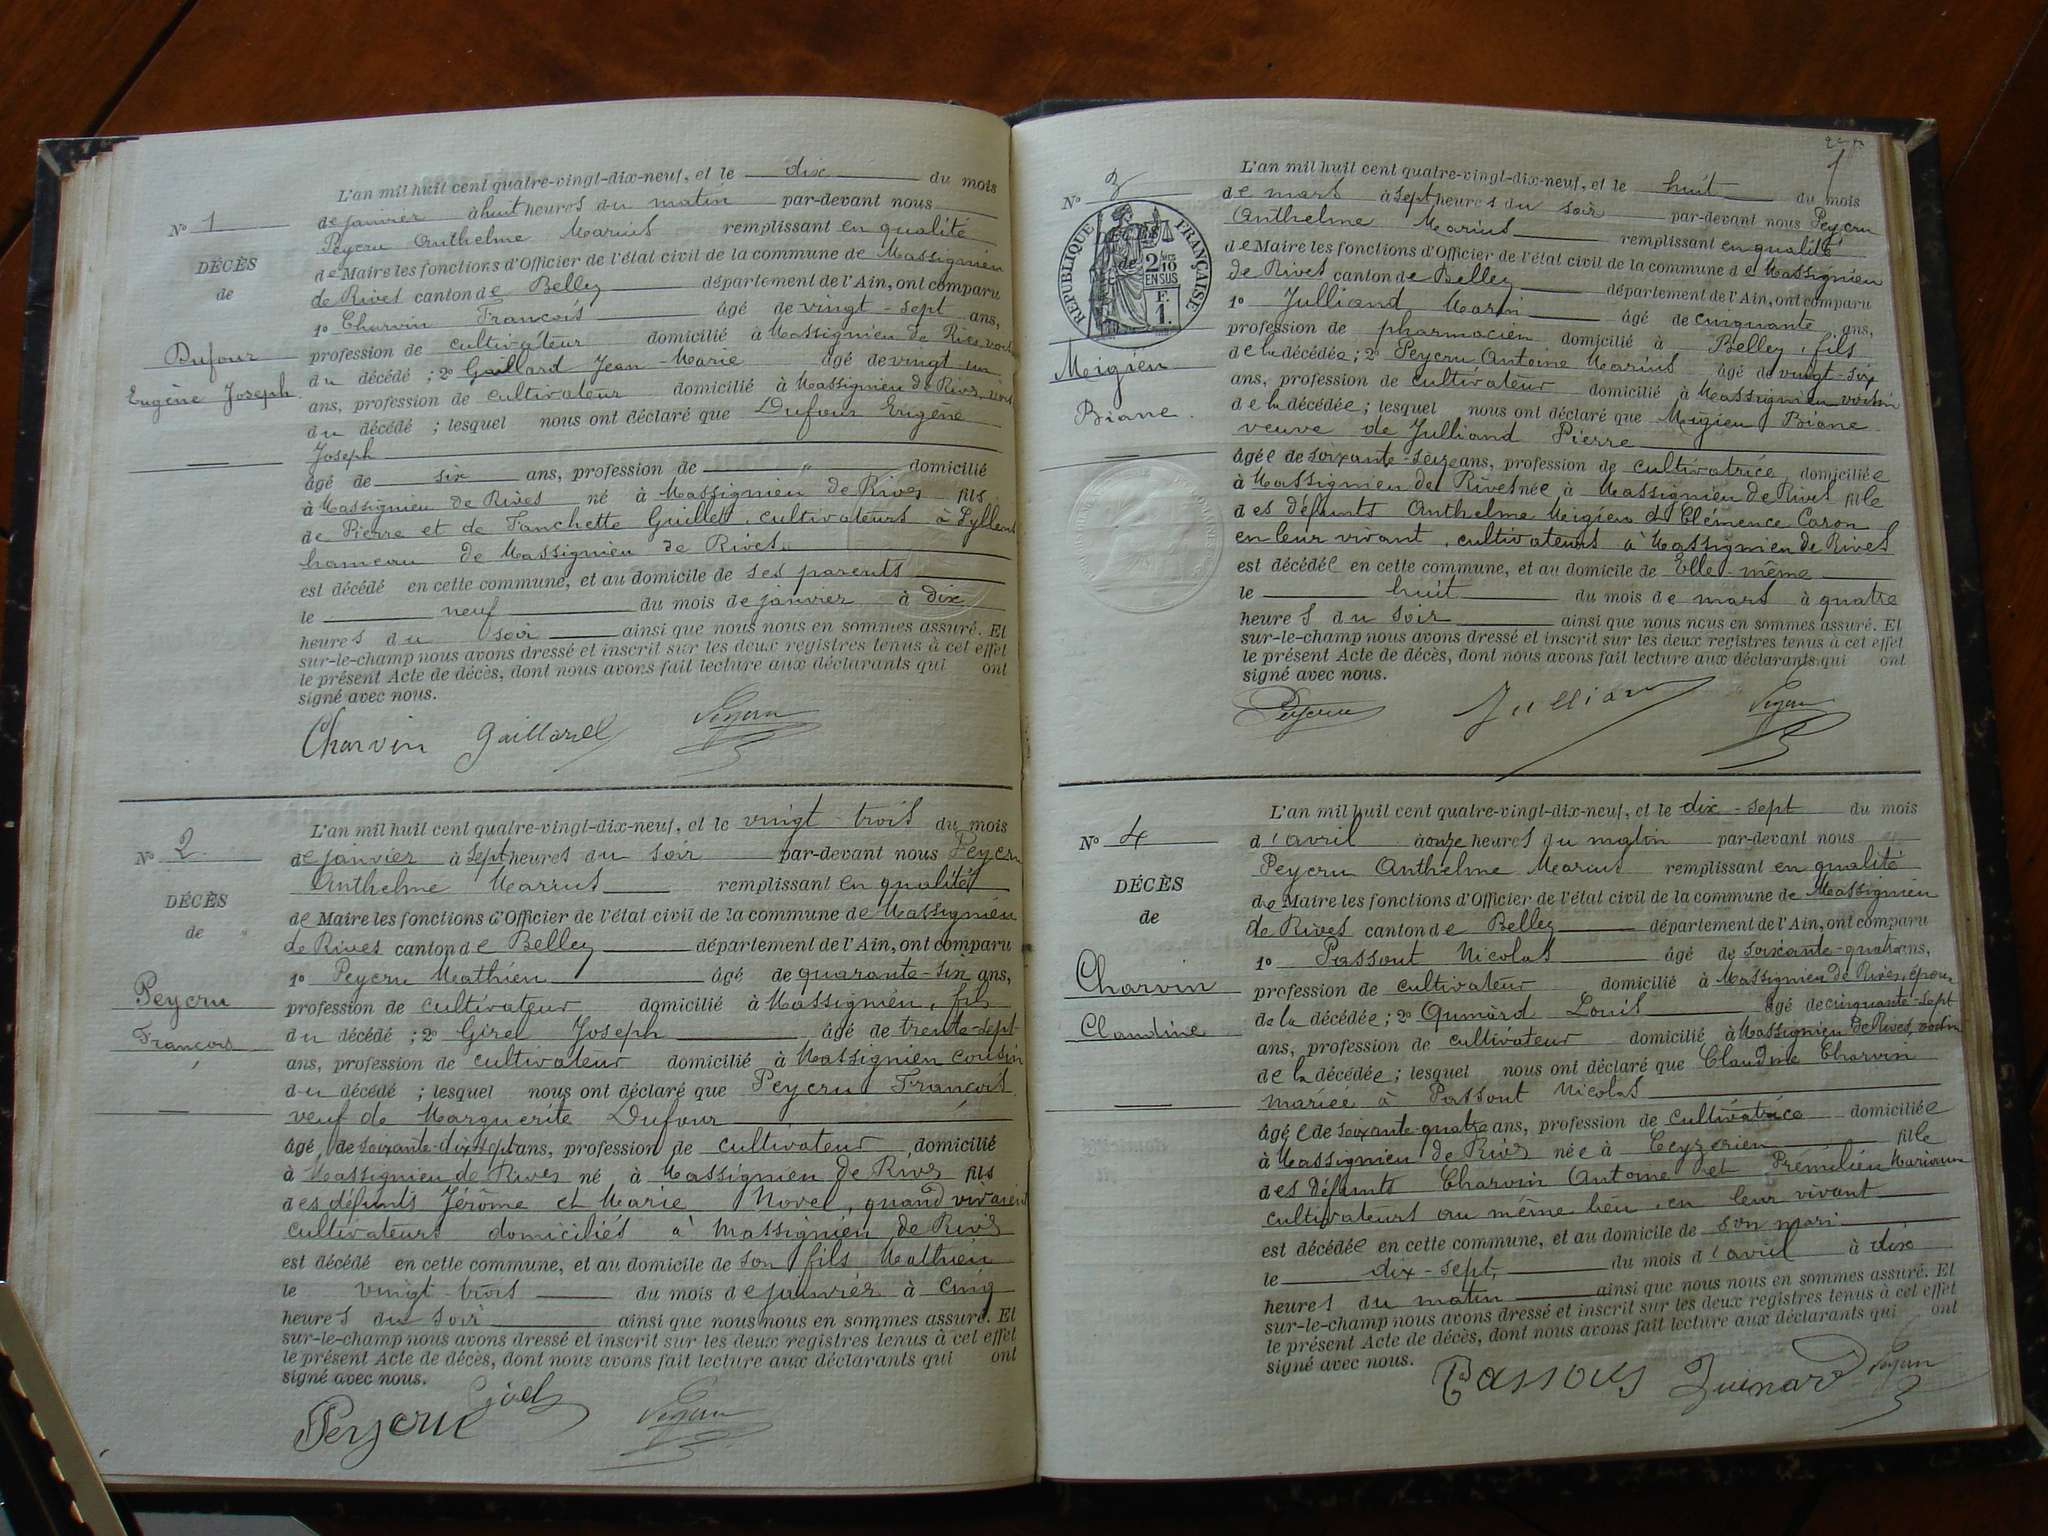 L'an mil huit cent quatre-vingt-dix-neuf, et le dix du mois
No 1
de janvier à huit heures du matin par-devant nous
Peycru Anthelme Marius remplissant en qualité
DÉCÈS
de
de Maire les fonctions d'Officier de l'état civil de la commune de Massignieu
de Rives canton de Belley département de l'Ain, ont comparu
1o Charvin François âgé de vingt-sept ans,
Dufour
Eugène Joseph
profession de cultivateur domicilié à Massignieu de Rives, voisin
du décédé ; 2o Gaillard Jean-Marie âgé de vingt un
ans, profession de cultivateur domicilié à Massignieu de Rives, voisin
du décédé ; lesquel nous ont déclaré que Dufour Eugène
Joseph
âgé de six ans, profession de " domicilié
à Massignieu de Rives né à Massignieu de Rives fils
de Pierre et de Fanchette Guillet, cultivateurs à
hameau de Massignieu de Rives
est décédé en cette commune, et au domicile de ses parents
le neuf du mois de janvier à dix
heures du soir ainsi que nous nous en sommes assuré. Et
sur-le-champ nous avons dressé et inscrit sur les deux registres tenus à cet effet
le présent Acte de décès, dont nous avons fait lecture aux déclarants qui ont
signé avec nous.
Charvin Gaillard Peycru
L'an mil huit cent quatre-vingt-dix-neuf, et le vingt-trois du mois
No 2
de janvier à sept heures du soir par-devant nous Peycru
Anthelme Marius remplissant en qualité
DÉCÈS
de
de Maire les fonctions d'Officier de l'état civil de la commune de Massignieu
de Rives canton de Belley département de l'Ain, ont comparu
1o Peycru Mathieu âgé de quarante-six ans,
Peycru
François
profession de cultivateur domicilié à Massignieu, fils
du décédé ; 2o Girel Joseph âgé de trente-sept
ans, profession de cultivateur domicilié à Massignieu cousin
du décédé ; lesquel nous ont déclaré que Peycru François
veuf de Marguerite Dufour
âgé de soixante-dix-sept ans, profession de cultivateur domicilié
à Massignieu de Rives né à Massignieu de Rives fils
des défunts Jérôme et Marie Novel, quand vivaient
cultivateurs domiciliés à Massignieu de Rives
est décédé en cette commune, et au domicile de son fils Mathieu
le vingt-trois du mois de janvier à cinq
heures du soir ainsi que nous nous en sommes assuré. Et
sur-le-champ nous avons dressé et inscrit sur les deux registres tenus à cet effet
le présent Acte de décès, dont nous avons fait lecture aux déclarants qui ont
signé avec nous.
Peycru Girel Peycru
1
L'an mil huit cent quatre-vingt-dix-neuf, et le huit du mois
No 3
de mars à sept heures du soir par-devant nous Peycru
Anthelme Marius remplissant en qualité
RÉPUBLIQUE FRANÇAISE
2/10
EN SUS
F.
1.
de Maire les fonctions d'Officier de l'état civil de la commune de Massignieu
de Rives canton de Belley département de l'Ain, ont comparu
1o Julliand Marin âgé de cinquante ans,
Meigieu
Biane
profession de pharmacien domicilié à Belley, fils
de la décédée ; 2o Peycru Antoine Marius âgé de vingt-six
ans, profession de cultivateur domicilié à Massignieu voisin
de la décédée ; lesquel nous ont déclaré que Meigieu Biane
veuve de Julliand Pierre
âgée de soixante-seize ans, profession de cultivatrice domiciliée
à Massignieu de Rives née à Massignieu de Rives fille
des défunts Anthelme Meigieu et Clémence Caron
en leur vivant, cultivateurs à Massignieu de Rives
est décédée en cette commune, et au domicile de Elle-même
le huit du mois de mars à quatre
heures du soir ainsi que nous nous en sommes assuré. Et
sur-le-champ nous avons dressé et inscrit sur les deux registres tenus à cet effet
le présent Acte de décès, dont nous avons fait lecture aux déclarants qui ont
signé avec nous.
Peycru Julliand Peycru
L'an mil huit cent quatre-vingt-dix-neuf, et le dix-sept du mois
No 4
d'avril à onze heures du matin par-devant nous
Peycru Anthelme Marius remplissant en qualité
DÉCÈS
de
de Maire les fonctions d'Officier de l'état civil de la commune de Massignieu
de Rives canton de Belley département de l'Ain, ont comparu
1o Passout Nicolas âgé de soixante-quatre ans,
Charvin
Claudine
profession de cultivateur domicilié à Massignieu de Rives, époux
de la décédée ; 2o Louis âgé de cinquante-sept
ans, profession de cultivateur domicilié à Massignieu de Rives, voisin
de la décédée ; lesquel nous ont déclaré que Claudine Charvin
mariée à Passout Nicolas
âgée de soixante-quatre ans, profession de cultivatrice domiciliée
à Massignieu de Rives née à Ceyzerieu fille
des défunts Charvin Antoine et Prémilieu Marianne
cultivateurs au même lieu, en leur vivant
est décédée en cette commune, et au domicile de son mari
le dix-sept du mois d'avril à dix
heures du matin ainsi que nous nous en sommes assuré. Et
sur-le-champ nous avons dressé et inscrit sur les deux registres tenus à cet effet
le présent Acte de décès, dont nous avons fait lecture aux déclarants qui ont
signé avec nous.
Peycru